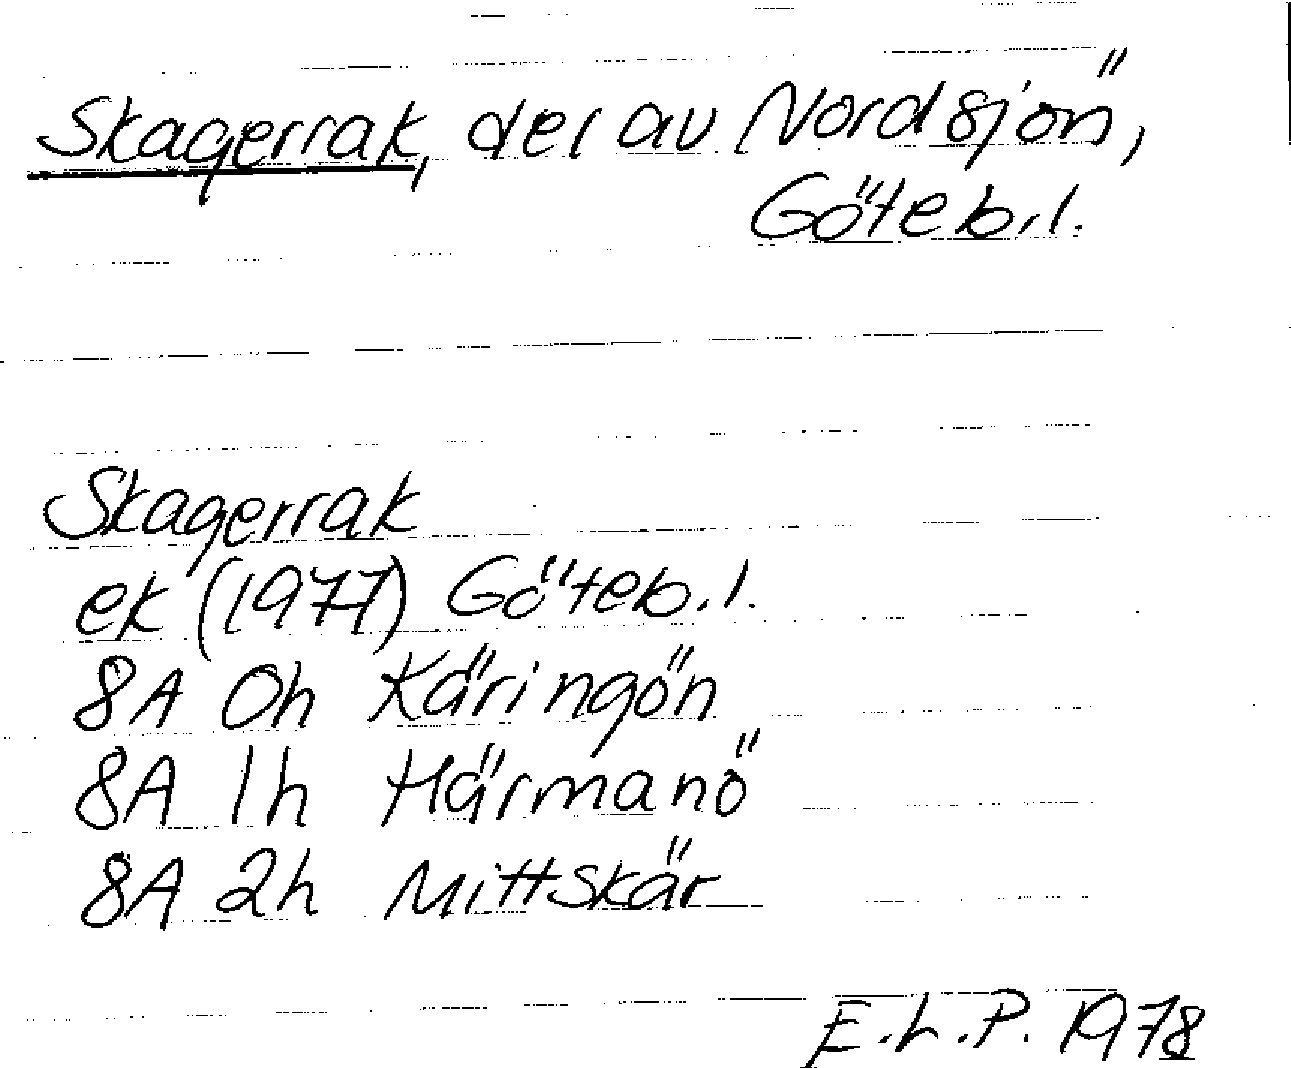 Skagerrak, del av Nordsjön,
Göteb.l.
Skagerrak
ek (1977) Göteb.l.
8A 0h Käringön
8A 1h Härmanö
8A 2h Mittskär
E.L.P. 1978